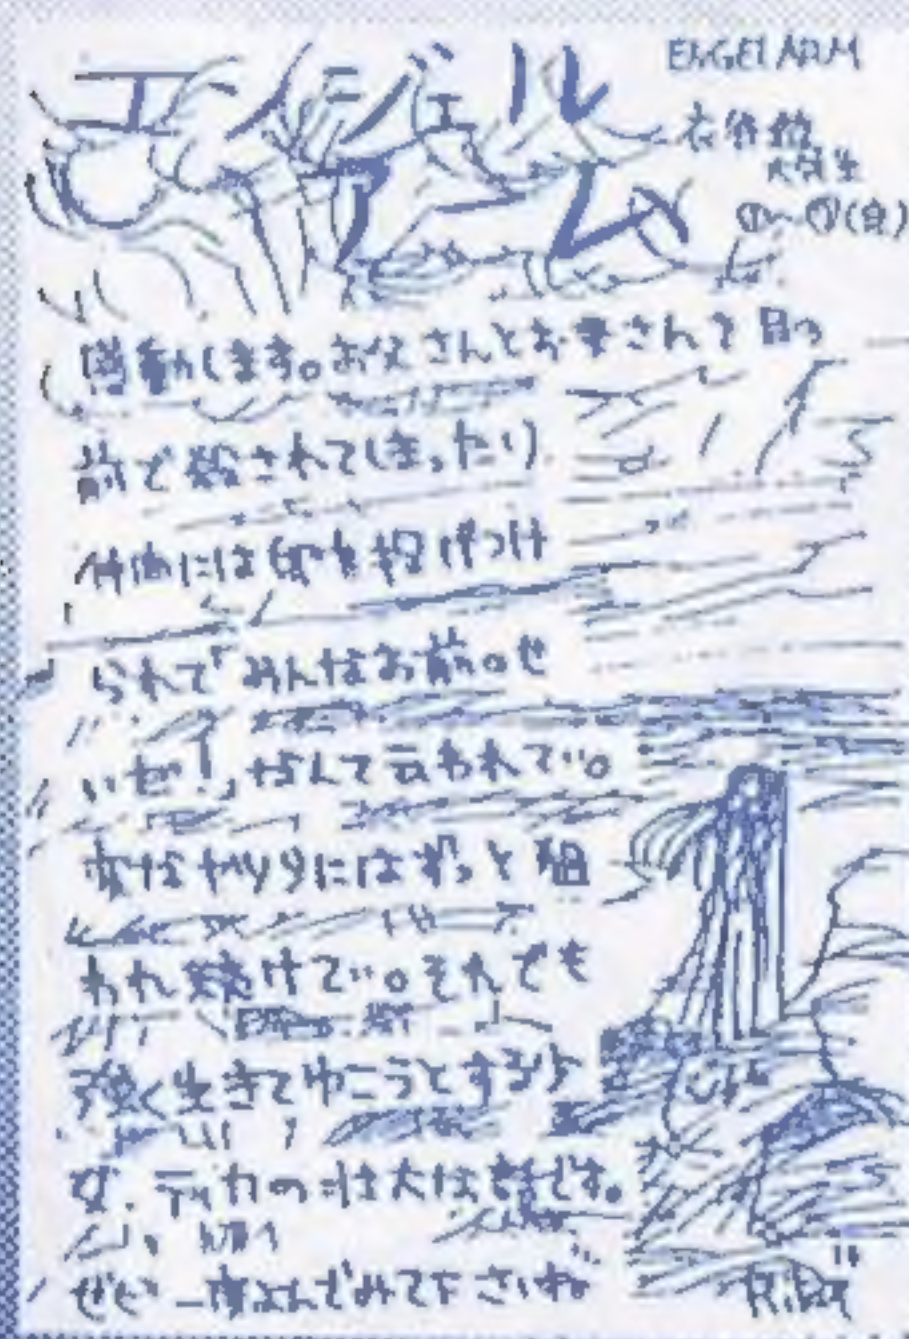 エンジェル
アーム
ENGEL ARM
感動します。お父さんとお母さんて目の
前で殺されてしまったり
仲間には卵を投げつけ
られて「みんなお前のせ
いだ!」なんて云われて…。
変なヤツらにはずっと狙
われ続けて…。それでも
強く生きてゆこうとする
ディカの壮大な話です。
ぜひ一度よんでみて下さいね